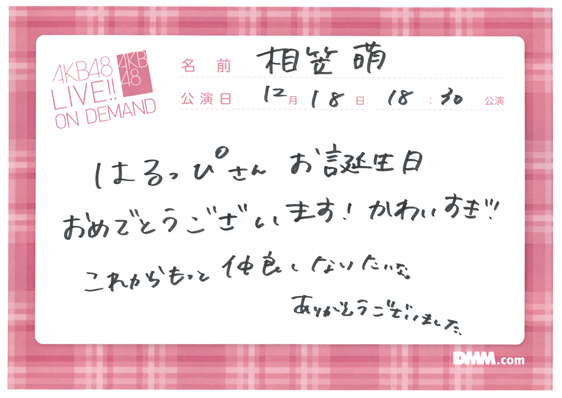 AKB48
LIVE!!
ON DEMAND
AKB
48
名 前 相笠 萌
公演日 12月 18日 18:30 公演
はるっぴさん お誕生日
おめでとうございます! かわいすぎ!!
これからもっと 仲良くなりたいな。
ありがとうございました。
DMM.com